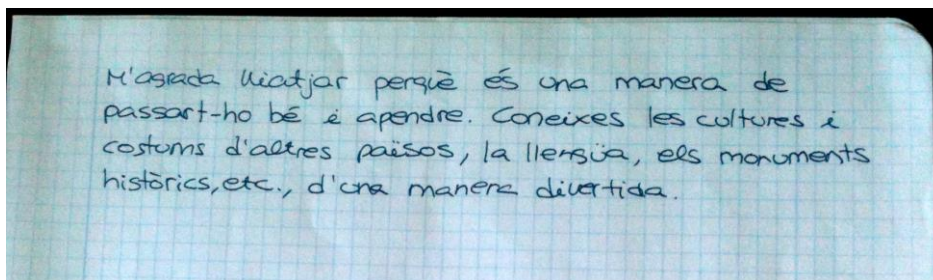 M'agrada viatjar perquè és una manera de
passart-ho bé i apendre. Coneixes les cultures i
costums d'altres països, la llengüa, els monuments
històrics, etc., d'una manera divertida.